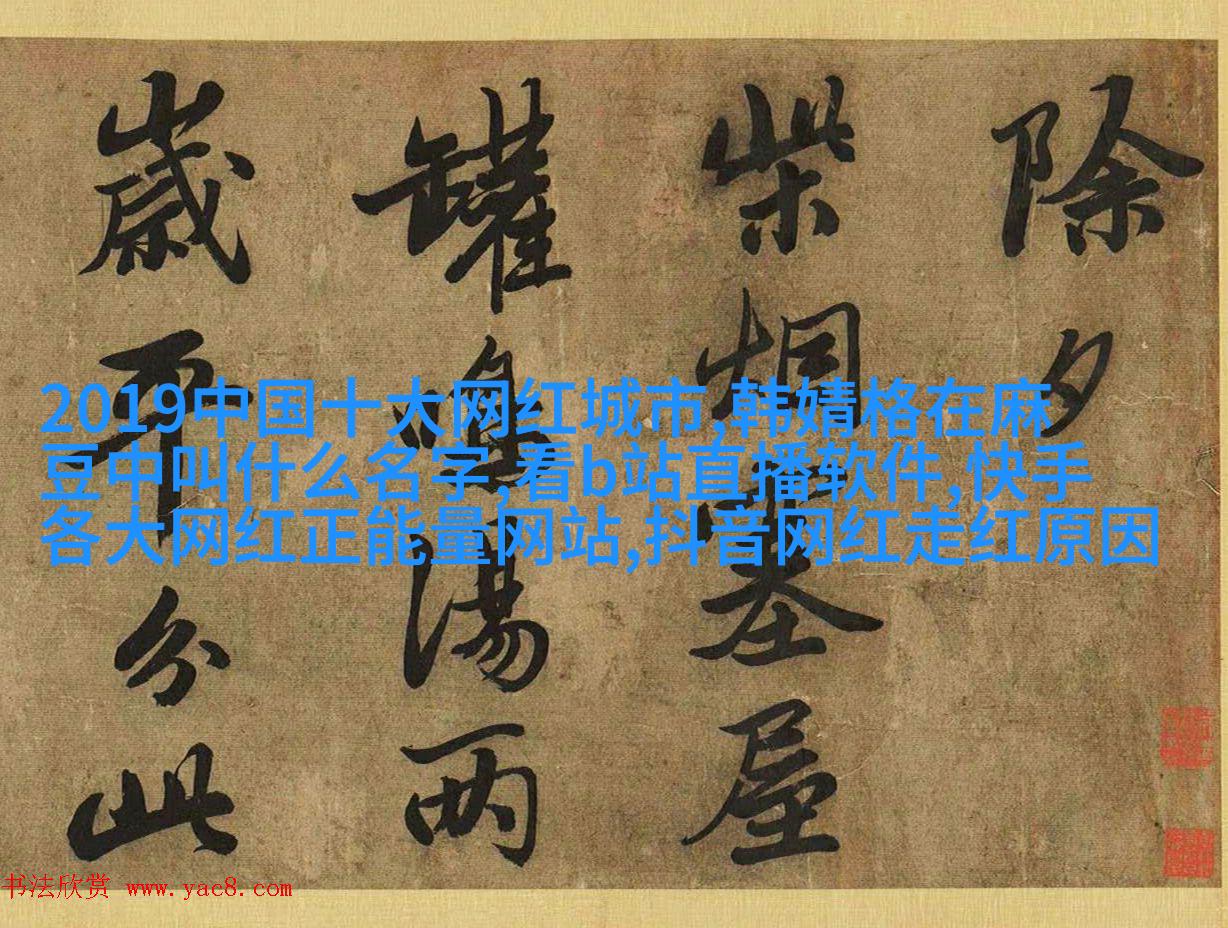 除夕
柴烟塞屋
罐鳴湯兩
歲平分此
2019中国十大网红城市,韩婧格在麻
豆中叫什么名字,看b站直播软件,快手
各大网红正能量网站,抖音网红走红原因
书法欣赏 www.yac8.com